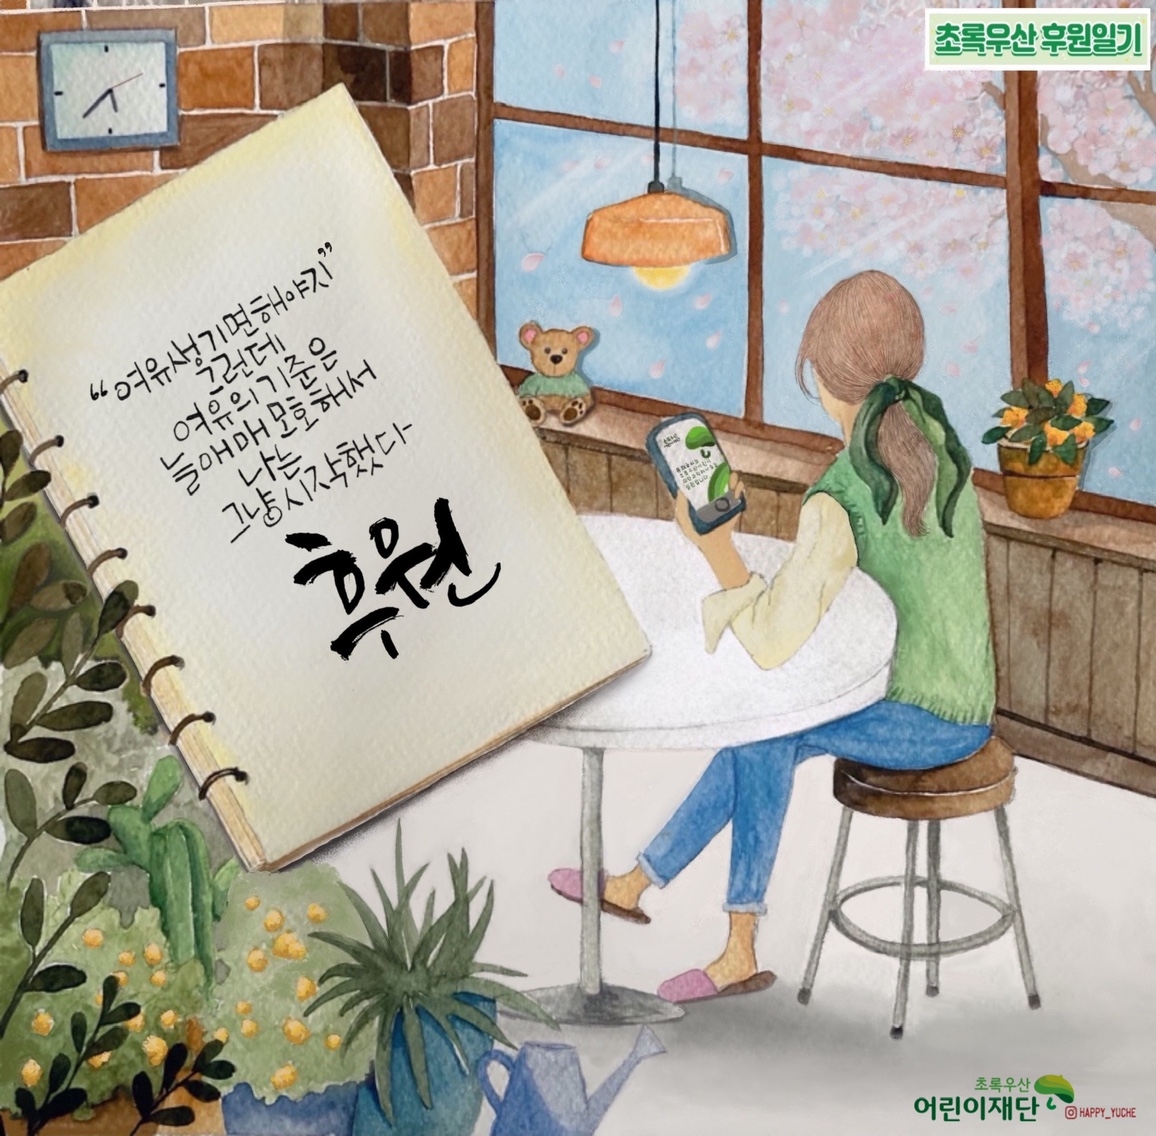 초록우산 후원일기
“여유생기면해야지”
그런데
여유의기준은
늘애매모호해서
나는
그냥시작했다
후원
초록우산
어린이재단
HAPPY_YUCHE